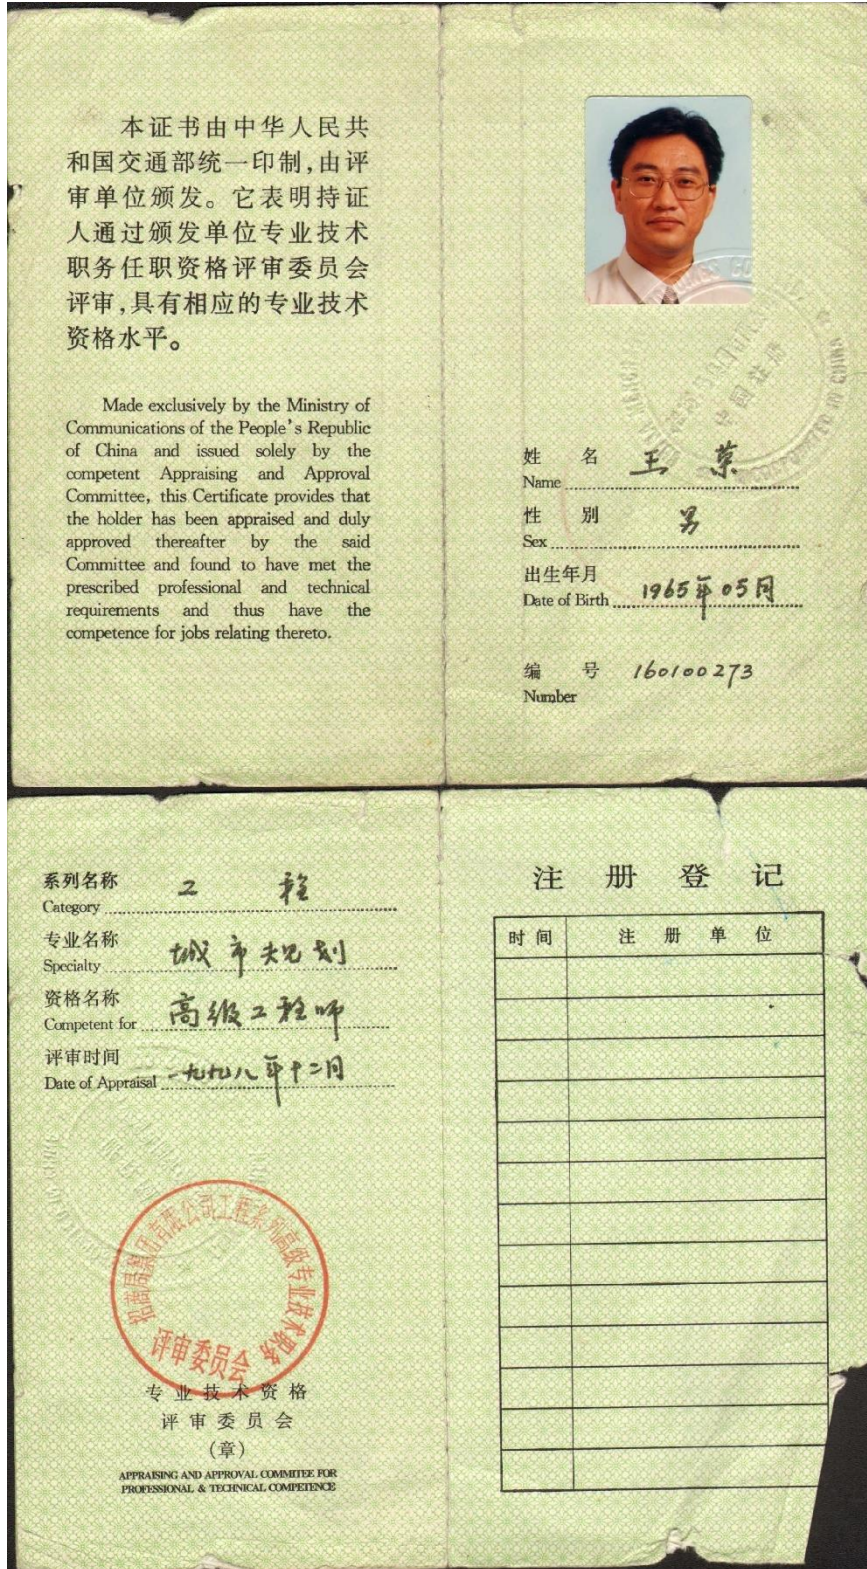 本证书由中华人民共
和国交通部统一印制,由评
审单位颁发。它表明持证
人通过颁发单位专业技术
职务任职资格评审委员会
评审,具有相应的专业技术
资格水平。
Made exclusively by the Ministry of
Communications of the People's Republic
of China and issued solely by the
competent Appraising and Approval
Committee, this Certificate provides that
the holder has been appraised and duly
approved thereafter by the said
Committee and found to have met the
prescribed professional and technical
requirements and thus have the
competence for jobs relating thereto.
姓 名 王
Name
性 别 男
Sex
出生年月 1965年05月
Date of Birth
编 号 160100273
Number
系列名称 工 程
Category
专业名称 城市规划
Specialty
资格名称 高级工程师
Competent for
评审时间 一九九八年十二月
Date of Appraisal
招商局集团有限公司工程系列高级专业技术职务
评审委员会
专业技术资格
评审委员会
(章)
APPRAISING AND APPROVAL COMMITEE FOR
PROFESSIONAL & TECHNICAL COMPETENCE
注册登记
时间 注册单位